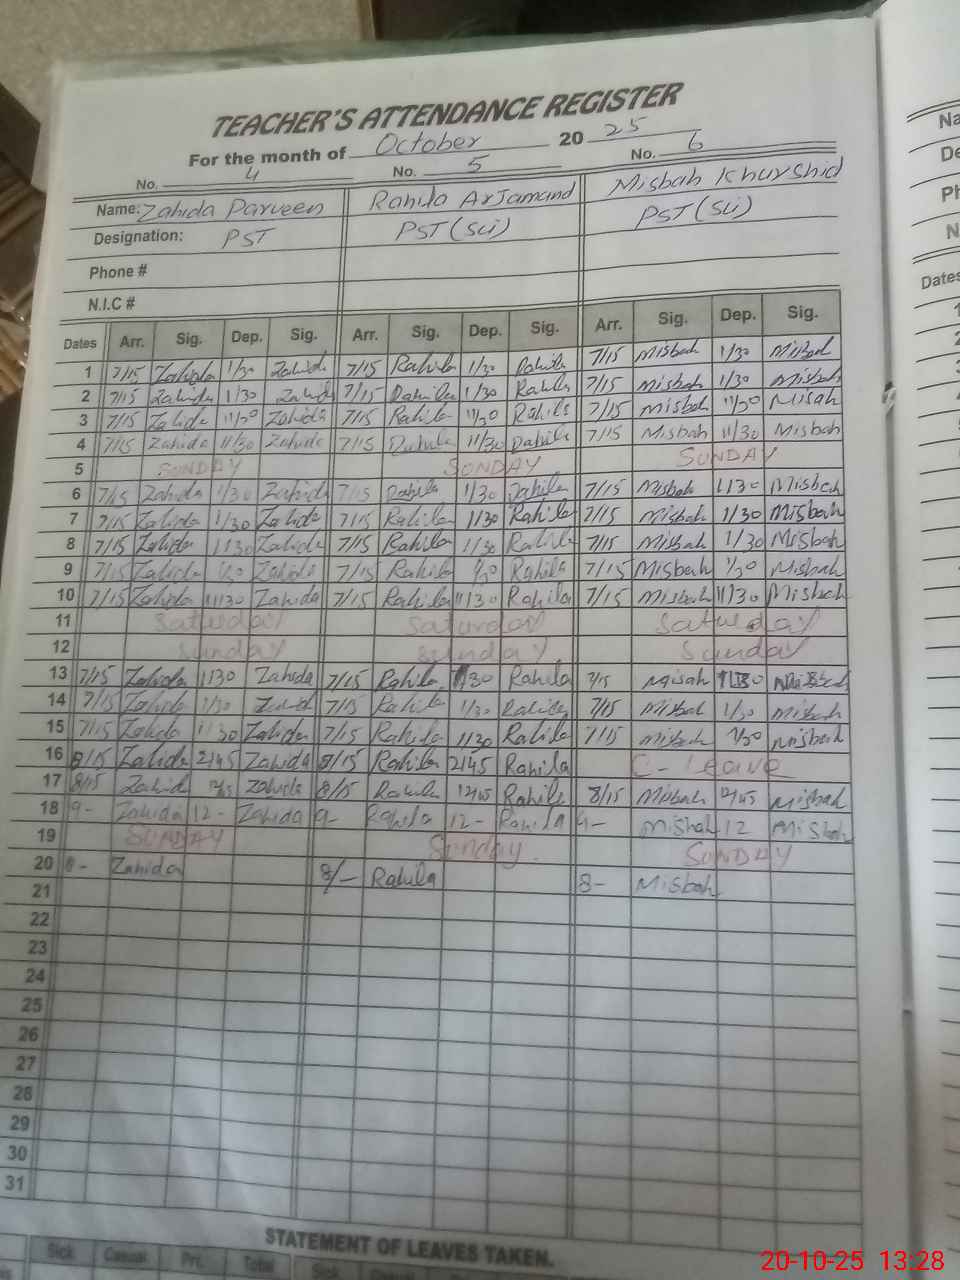 TEACHER'S ATTENDANCE REGISTER
For the month of October 2025
No. 4 No. 5 No. 6
Name: Zahida Parveen Rahila Arjamand Misbah Khurshid
Designation: PST PST (Sci) PST (Sci)
Phone #
N.I.C #
Dates Arr. Sig. Dep. Sig. Arr. Sig. Dep. Sig. Arr. Sig. Dep. Sig.
1 7/15 Zahida 1/30 Zahida 7/15 Rahila 1/30 Rahila 7/15 Misbah 1/30 Misbah
2 7/15 Zahida 1/30 Zahida 7/15 Rahila 1/30 Rahila 7/15 Misbah 1/30 Misbah
3 7/15 Zahida 11/30 Zahida 7/15 Rahila 11/30 Rahila 7/15 Misbah 11/30 Misah
4 7/15 Zahida 11/30 Zahida 7/15 Rahila 11/30 Rahila 7/15 Misbah 11/30 Misbah
5 SUNDAY SUNDAY SUNDAY
6 7/15 Zahida 1/30 Zahida 7/15 Rahila 1/30 Rahila 7/15 Misbah 1/30 Misbah
7 7/15 Zahida 1/30 Zahida 7/15 Rahila 1/30 Rahila 7/15 Misbah 1/30 Misbah
8 7/15 Zahida 1/30 Zahida 7/15 Rahila 1/30 Rahila 7/15 Misbah 1/30 Misbah
9 7/15 Zahida 1/30 Zahida 7/15 Rahila 1/30 Rahila 7/15 Misbah 1/30 Misbah
10 7/15 Zahida 11/30 Zahida 7/15 Rahila 11/30 Rahila 7/15 Misbah 11/30 Misbah
11 Saturday Saturday Saturday
12 Sunday Sunday Sunday
13 7/15 Zahida 1/30 Zahida 7/15 Rahila 1/30 Rahila 7/15 Misah
14 7/15 Zahida 1/30 Zahid 7/15 Rahila 1/30 Rahila 7/15 Misbah 1/30 Misbah
15 7/15 Zahida 1/30 Zahida 7/15 Rahila 1/30 Rahila 7/15 Misbah 1/30 Misbah
16 8/15 Zahida 2/45 Zahida 8/15 Rahila 2/45 Rahila C-Leave
17 8/15 Zahid 12/45 Zahida 8/15 Rahila 12/45 Rahila 8/15 Misbah 12/45 Misbah
18 9- Zahida 12- Zahida 9- Rahila 12- Rahila 9- Misbah 12 Misbah
19 SUNDAY Sunday. SUNDAY
20 8- Zahida 8/- Rahila 8- Misbah
21
22
23
24
25
26
27
28
29
30
31
STATEMENT OF LEAVES TAKEN.
Sick Casual Pri. Total Sick
Na
De
Ph
N
Dates
20-10-25 13:28